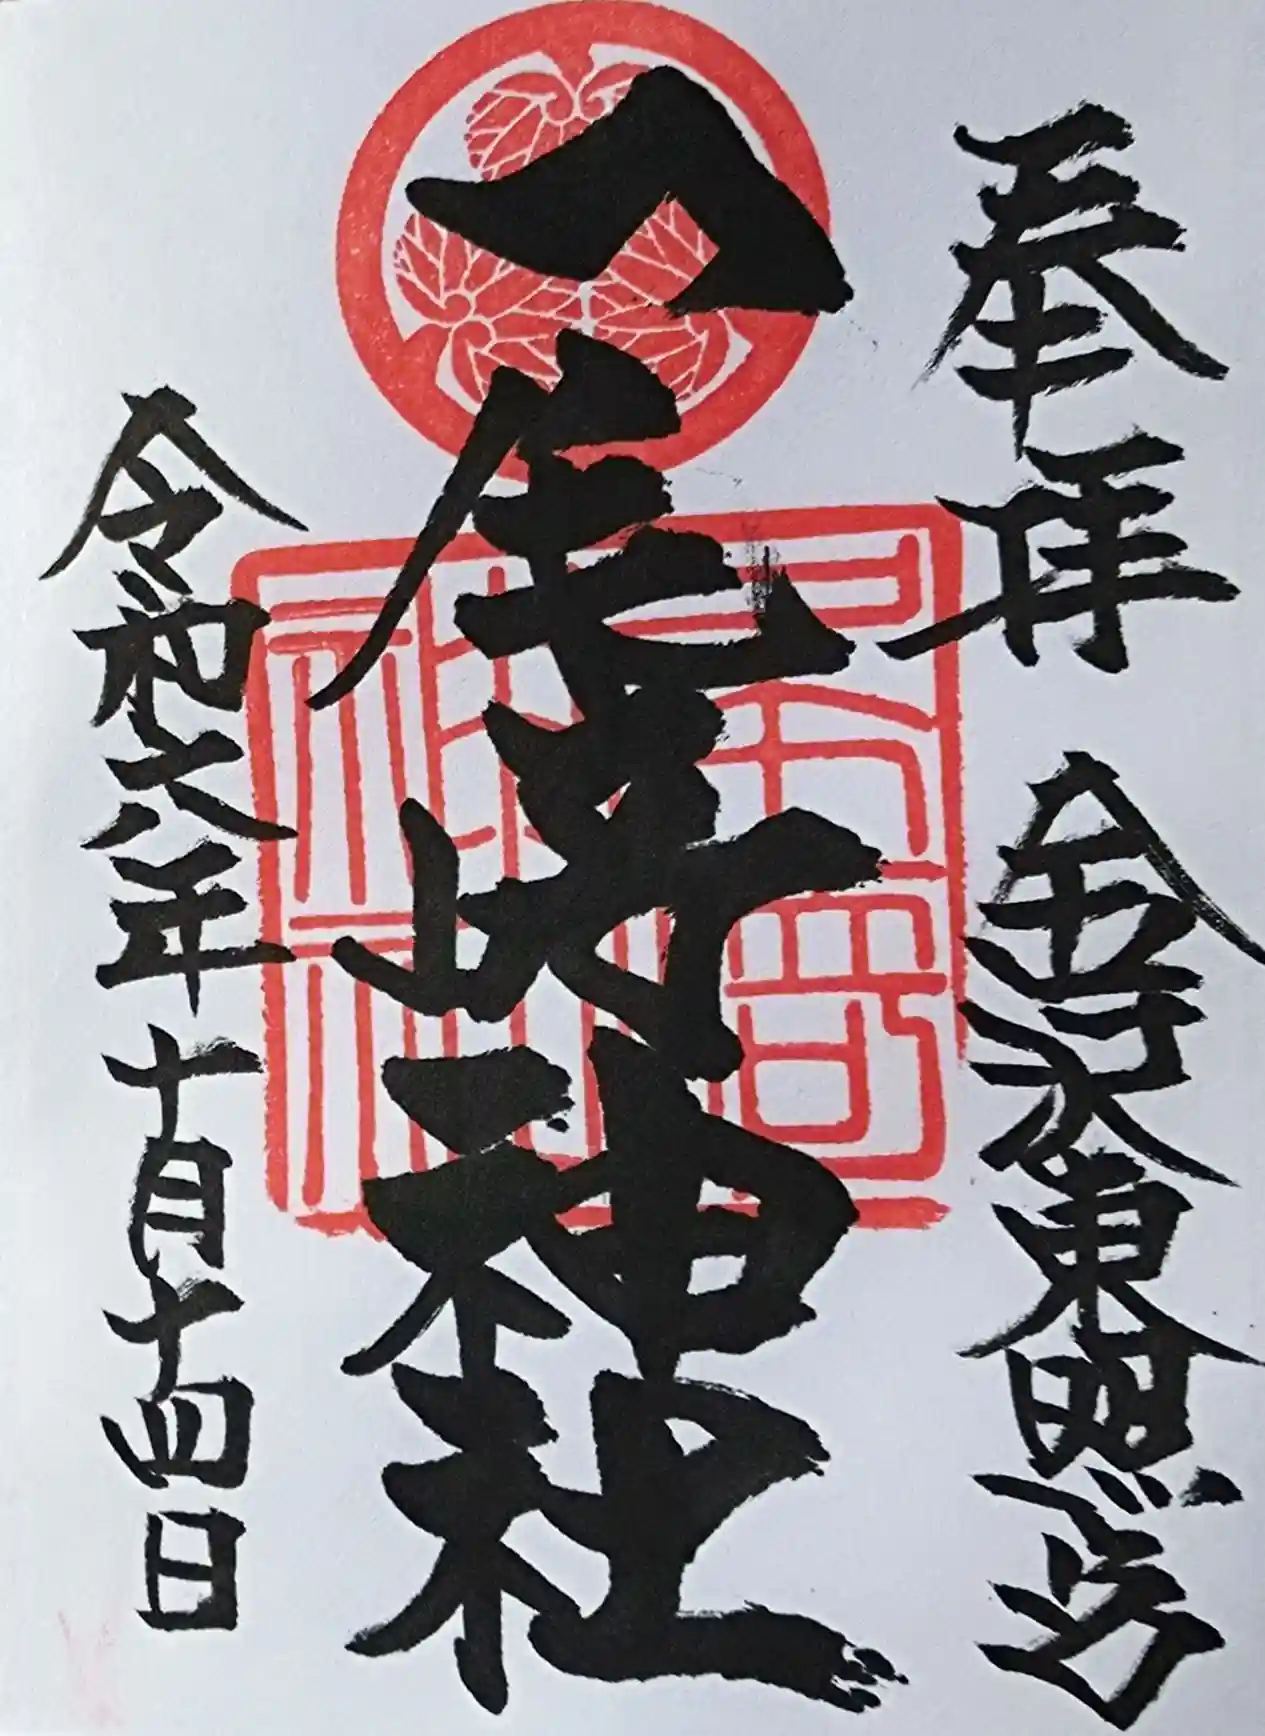 奉拝 金沢東照宮
尾崎神社
令和六年十月十四日